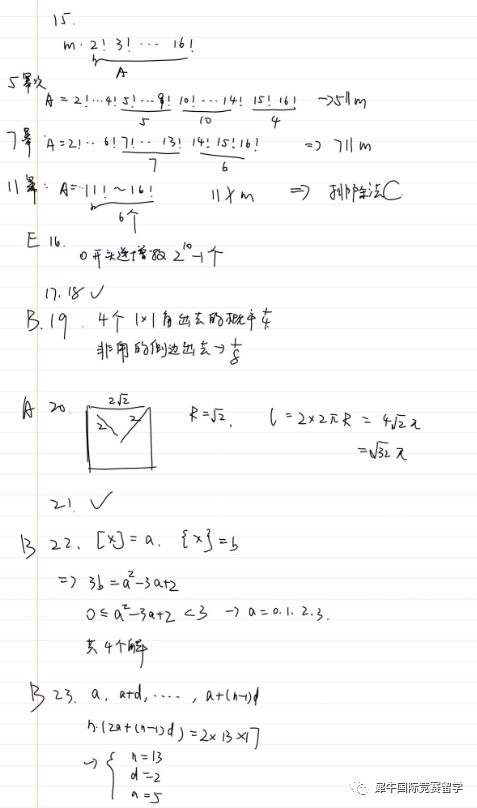 15.
m · 2! 3! ··· 16!
A
5幂次 A = 2!···4! 5!···9! 10!···14! 15! 16! → 5∥m
5 10 4
7幂 A = 2!·· 6! 7!·· 13! 14! 15! 16! ⇒ 7∥m
7 6
11幂: A = 11! ~ 16! 11∤m ⇒ 排除法C
6个
E 16. 0开头递增数 2^10-1个
17. 18 ✓
B. 19. 4个 1×1角出去的概率 1/4
非角的侧边出去 → 1/8
A 20. 2√2 R = √2, l = 2×2πR = 4√2π
2 2 = √32 π
21. ✓
B 22. [x] = a. {x} = b
⇒ 3b = a²-3a+2
0 ≤ a²-3a+2 < 3 → a = 0.1.2.3.
共4个解
B 23. a, a+d, ····, a+(n-1)d
n·(2a+(n-1)d) = 2×13×17
→ { n = 13
d = 2
a = 5
犀牛国际竞赛留学